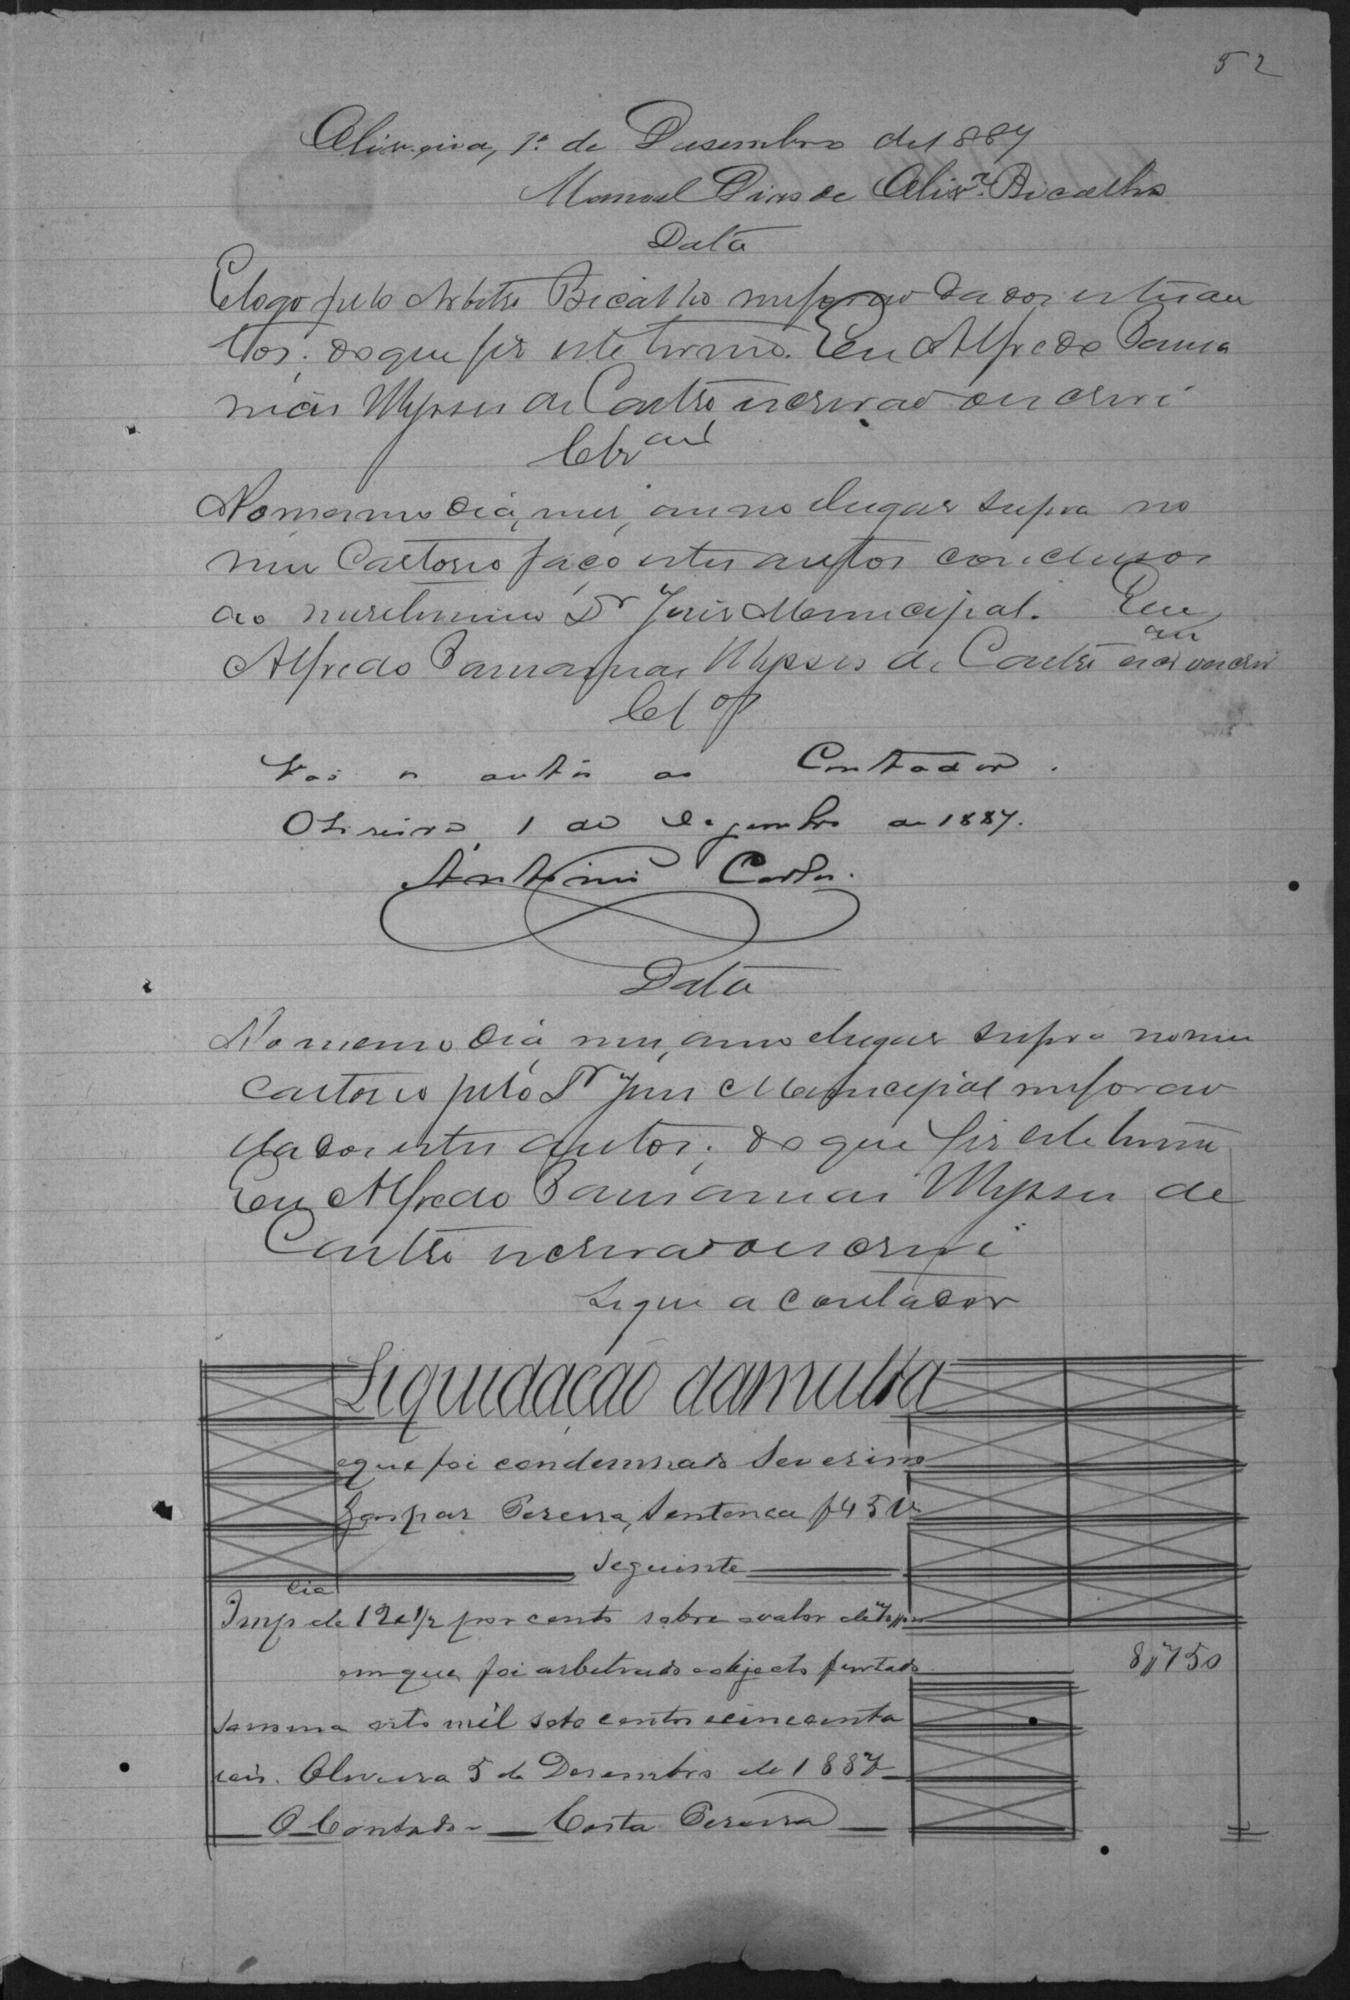 52
Oliveira, 1º de Desembro de 1887
Manoel Dias de Olivrª Bicalho
Data
E logo pelo Arbitro Bicalho me forão dados estes au
tos; do que fiz este termo. Eu Alfredo Pausa
nias Ulysses de Castro escrivão o escrevi
Clzam
No mesmo dia, mez, anno e lugar supra no
meu Cartorio faço estes autos conclusos
ao meretissimo Dr Juiz Municipal. Eu
Alfredo Pausanias Ulysses de Castro escrivam o escrevi
Clos
Vão os autos ao Contador.
Oliveira, 1 de Dezembro de 1887.
Antonio Carlos.
Data
No mesmo dia, mez, anno e lugar supra no meu
Cartorio pelo Dr Juiz Municipal me forão
dados estes autos; do que fiz este termo
Eu Alfredo Pausanias Ulysses de
Castro escrivão o escrevi
Segue a contador
Liquidação da multa
a que foi condemnado Severino
Gaspar Pereira, Sentença f 45 V
seguinte
Impcia de 12 e 1/2 por cento sobre o valor de 70$000
em que foi arbitrado o objecto furtado 8$750
Somma oito mil sete centos e cincoenta
reis. Oliveira 5 de Desembro de 1887
O Contador Costa Pereira